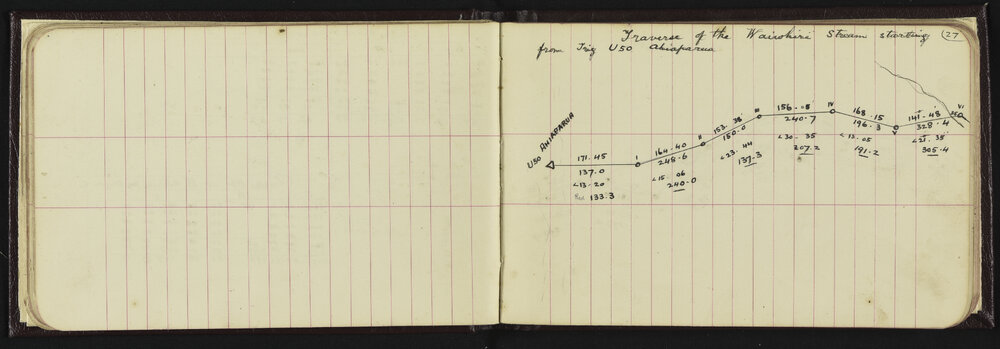 Traverse of the Wairohiri Stream starting 27
from Trig U50 Ahiaparua
U50 AHIAPARUA
171.45
137.0
<13.20
Red 133.3
I
164.40
248.6
<15.06
240.0
II
153.38
150.0
<23.44
137.3
III
156.05'
240.7
<30.35
207.2
IV
168.15
196.3
<13.05
191.2
V
141°48'
328.4
<21.35'
305.4
VI